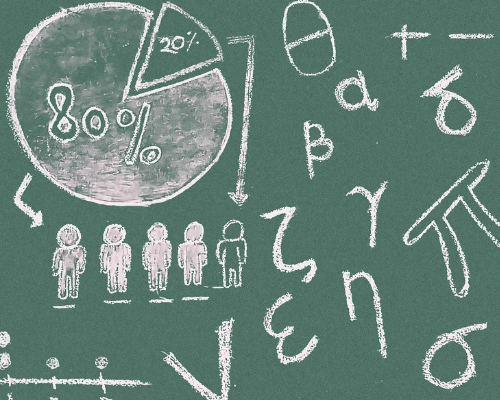 20%
80%
θ
+ −
α
δ
β
γ
π
ζ
η
ε
σ